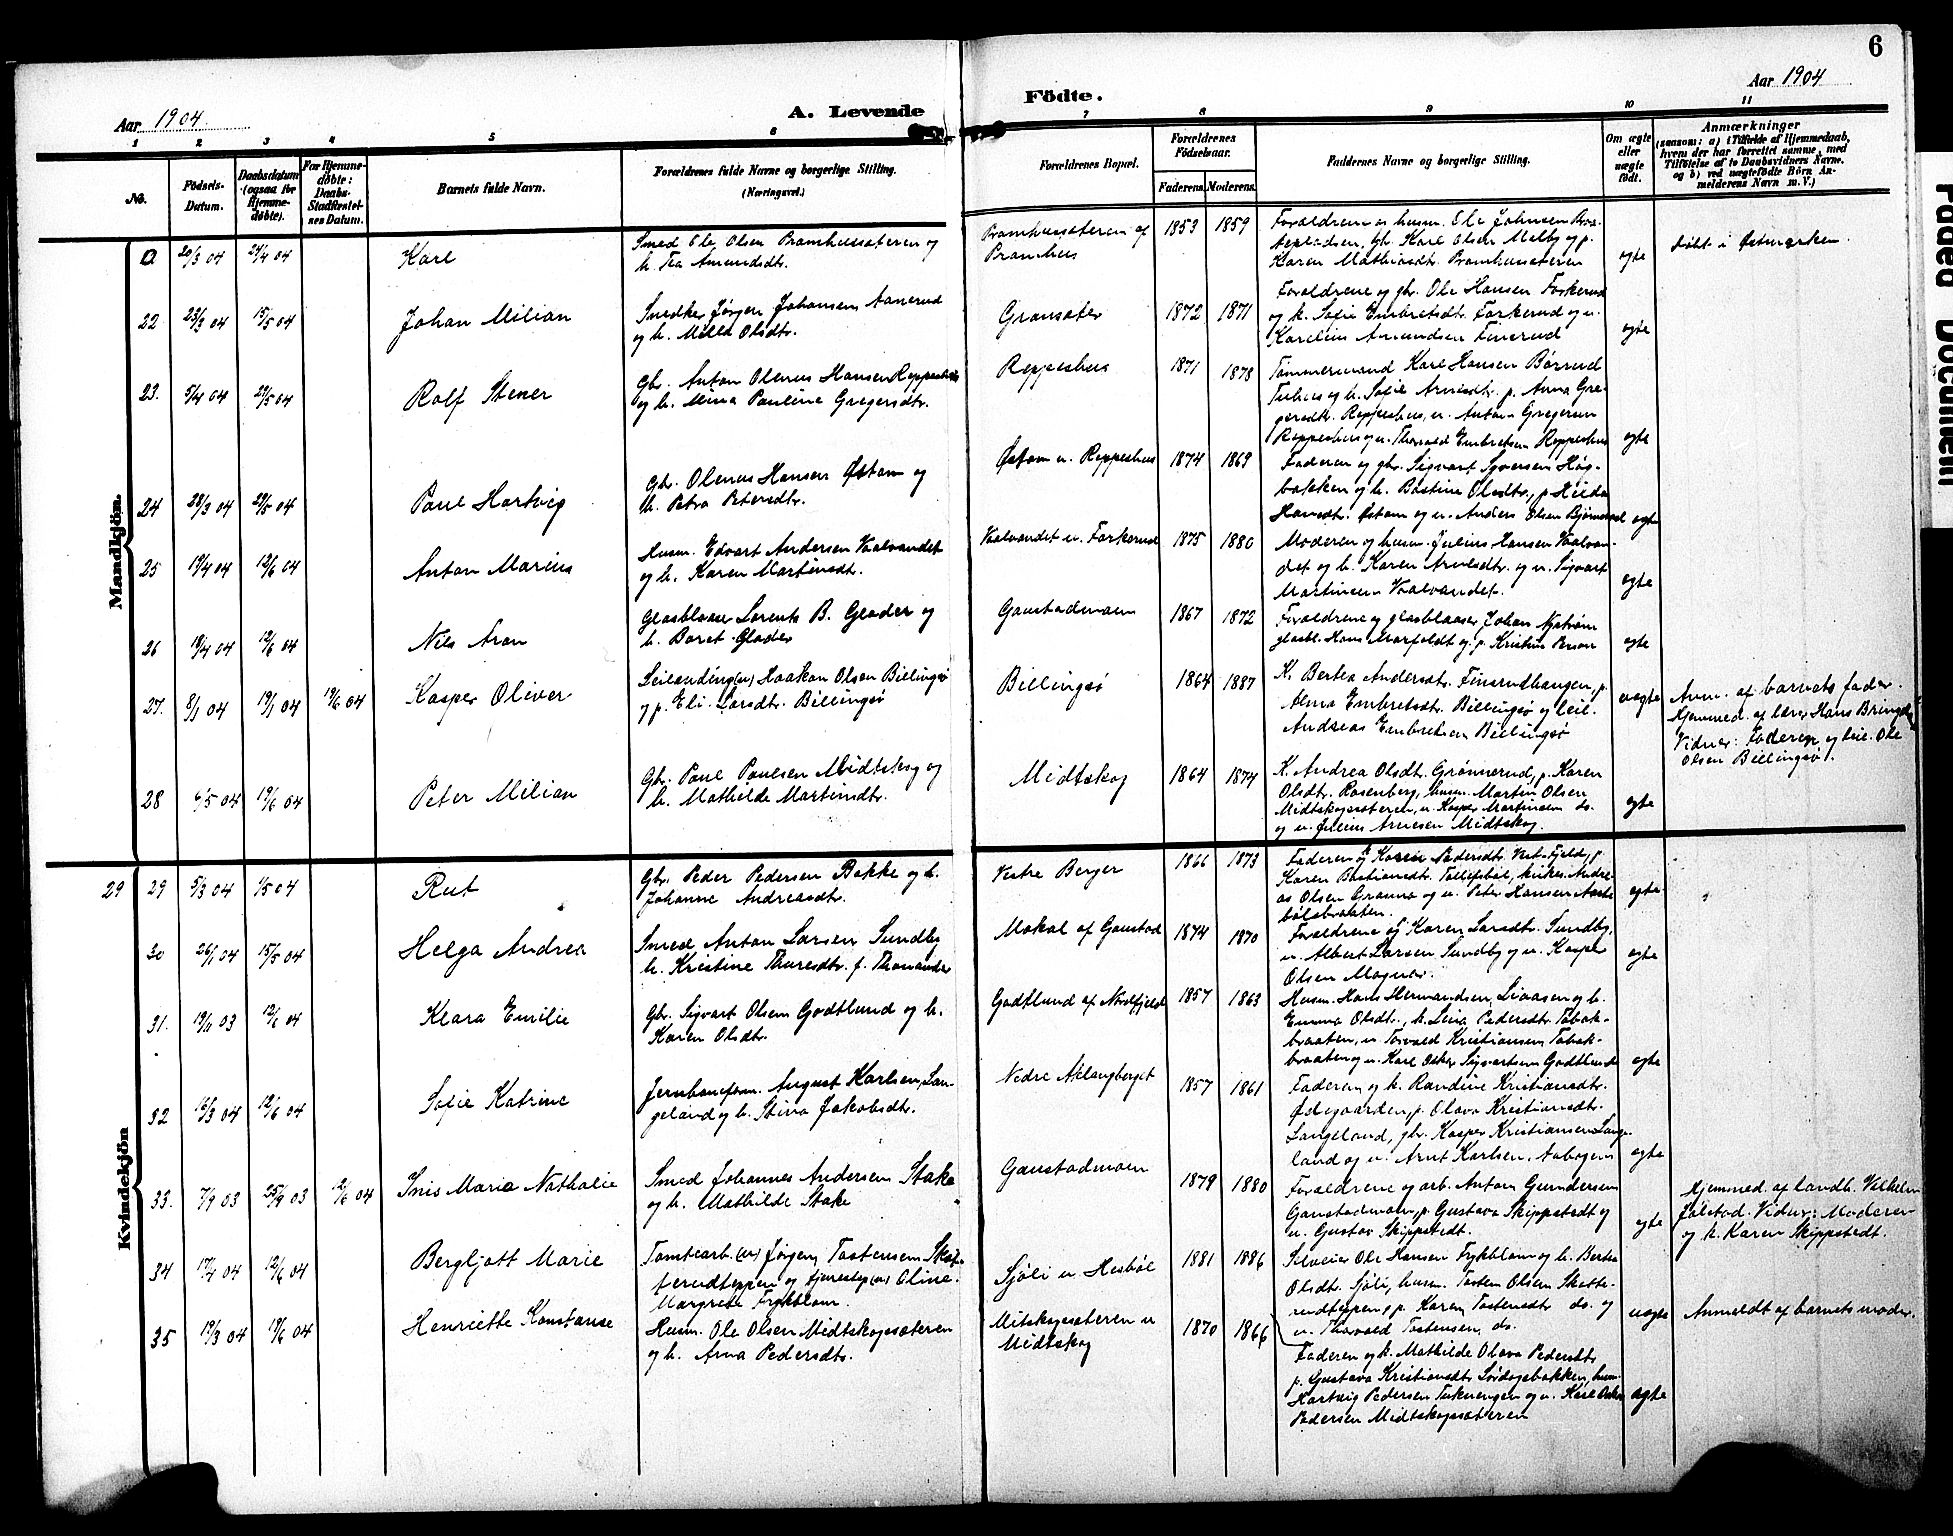 6
Aar 1904
A. Levende
Födte.
Aar 1904
1 2 3 4 5 6 7 8 9 10 11
No.
Födsels-Datum.
Daabsdatum (ogsaa for Hjemmedöbte).
For Hjemmedöbte: Daabs-Stadfæstelses Datum.
Barnets fulde Navn.
Forældrenes fulde Navne og borgerlige Stilling. (Næringsvei.)
Forældrenes Bopæl.
Forældrenes Födselsaar.
Faderens. Moderens.
Faddernes Navne og borgerlige Stilling.
Om ægte eller uægte födt.
Anmærkninger
(saasom: a) i Tilfælde af Hjemmedaab, hvem der har forrettet samme, med Tilföielse af to Daabsvidners Navne. og b) ved uægtefödte Börn Anmelderens Navn m. V.)
Mandkjön.
20/3 04 24/4 04 Karl
Smed Ole Olsen Bramhussæteren og
h. Tea Amundsdtr.
Bramhussæteren af
Bramhus
1853 1859
Forældrene
Karl Olsen Melby og p.
Karen Mathisdtr. Bramhussæteren
ægte
døbt i Østmarken.
22 23/3 04 15/5 04 Johan Milian
Snedker Jørgen Johansen Aanerud
og h. Milla Olsdtr.
Gransæter
1872 1871
Forældrene og gbr. Ole Hansen Forkerud
og h. Sofie Embretsdtr. Forkerud og u.
Karelius Amundsen Finerud
ægte
23. 5/4 04 29/5 04 Rolf Stener
Gbr. Anton Olenus Hansen Reppeshus
og h. Mina Pauline Gregersdtr.
Reppeshus
1871 1878
Tømmermand Karl Hansen Børrud
og h. Sofie Arnesdtr. p. Anna Gre-
gersdtr. Reppeshus, u. Anton Gregersen
Reppeshus og u. Thorvald Embretsen Reppeshus
ægte
24 28/3 04 29/5 04 Paul Hartvig
Gbr. Olenus Hansen Østom og
h. Petra Petersdtr.
Østom u. Reppeshus
1874 1869
Faderen og gbr. Sigvart Syversen Høg-
bakken og h. Bastine Olsdtr., p. Hilda
Hansdtr. Østom og u. Anders Olsen
ægte
25 19/4 04 12/6 04 Anton Marius
Husm. Edvart Andersen Vaalvandet
og h. Karen Martinsdtr.
Vaalvandet u. Forkerud
1875 1880
Moderen og husm. Julius Hansen Vaalvan-
det og h. Karen Arnesdtr. og u. Sigvart
Martinsen Vaalvandet.
ægte
26 18/4 04 12/6 04 Nils Aron
Glasblaaser Lorents B. Glader og
h. Boret Glader
Gaustadmoen
1867 1872
Forældrene og glasblaaser Johan Nystrøm
glasbl. Hans Marfoldt og p. Kristine Person
ægte
27. 8/1 04 19/1 04 19/6 04 Kasper Oliver
Leilending(u) Haakon Olsen Billingsø
og p. Eli Larsdtr. Billingsø
Billingsø
1864 1887
K. Bertea Andersdtr. Finsrudhaugen, p.
Alma Embretsdtr. Billingsø og leil.
Andreas Embretsen Billingsø
uægte
Anm. af barnets fader.
Hjemmed. af lærer Hans Bringsby
Vidner: Faderen og leil. Ole
Olsen Billingsø.
28 6/5 04 19/6 04 Peter Milian
Gbr. Paul Paulsen Midtskog og
h. Mathilde Martinsdtr.
Midtskog
1864 1874
K. Andrea Olsdt. Grønnerud, p. Karen
Olsdtr. Rosenberg, husm. Martin Olsen
Midtskogsæteren, u. Kasper Martinsen do.
og u. Julius Arnesen Midtskog.
ægte
Kvindekjön
29 29 5/3 04 1/5 04 Rut
Gbr. Peder Pedersen Bakke og h.
Johanne Andreasdtr.
Vestre Berger
1866 1873
Faderen og k. Karen Pedersdtr. Vest-Fjeld, p.
Karen Bastiansdtr. Tollefsbøl, kirkes. Andre-
as Olsen Granmo og u. Peter Hansen Aaste
bølsbraaten.
ægte
30 26/1 04 15/5 04 Helga Andrea
Smed Anton Larsen Sundby
h. Kristine Thuresdtr. f. Thomander
Mokal af Gaustad
1874 1870
Forældrene og Karen Larsdtr. Sundby,
u. Albert Larsen Sundby og u. Kasper
Olsen Magnor.
ægte
31. 19/11 03 12/6 04 Klara Emilie
Gbr. Sigvart Olsen Godtlund og h.
Karen Olsdtr.
Godtlund af Nordfjeld
1857 1863
Husm. Hans Hermandsen, Liaasen og h.
Emma Olsdtr., k. Lina Pedersdtr. Tabak-
braaten, u. Torvald Kristiansen, Tabak-
braaten og u. Karl Oskar Sigvartsen Godtlund
ægte
32 15/3 04 12/6 04 Sofie Katrine
Jernbaneform. August Karlsen, Lan-
geland og h. Stina Jakobsdtr.
Nedre Aklangberget
1857 1861
Faderen og k. Randine Kristiansdtr.
Ødegaarden, p. Olava Kristiansdtr.
Langeland, gbr. Kasper Kristiansen Lange-
land og u. Arnt Karlsen, Aabogen
ægte
33. 7/9 03 25/9 03 12/6 04 Inis Maria Nathalie
Smed Johannes Andersen Stake
og h. Mathilde Stake
Gaustadmoen
1879 1880
Forældrene og arb. Anton Gundersen
Gaustadmoen, p. Gustava Skippstedt og
u. Gustav Skippstedt.
ægte
Hjemmed. af landh. Vilhelm
Jølstad. Vidner: Moderen
og k. Karen Skippstedt.
34 17/4 04 12/6 04 Bergljott Marie
Tomtearb. (u) Jørgen Tostensen Skot-
terudteppen og tjenestep(u) Oline
Margrete Frykblom.
Sjøli u. Hesbøl
1881 1886
Selveier Ole Hansen Frykblom og h. Bertea
Olsdtr. Sjøli, husm. Tosten Olsen Skotte-
rudteppen, p. Karen Tostensdtr do. og
u. Thorvald Tostensen, do.
uægte
Anmeldt af barnets moder.
35 19/3 04 19/6 04 Henriette Konstanse
Husm. Ole Olsen Midtskogsæteren
og h. Anna Pedersdtr.
Mitskogsæteren u
Midtskog
1870 1866
Faderen og k. Mathilde Olava Pedersdtr
p. Gustava Kristiansdtr husm
Hartvig Pedersen Tukuengen og u. Karl Oskar
Pedersen Midtskogsæteren
ægte